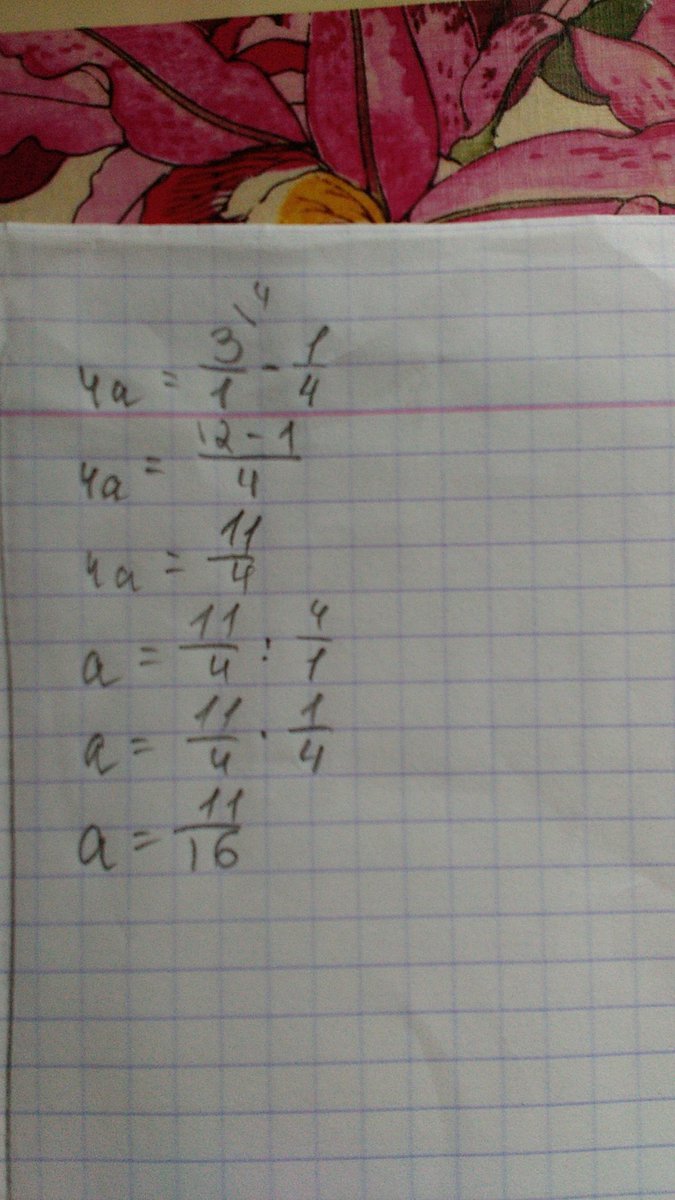 4a = 3/1 \4 - 1/4
4a = (12 - 1)/4
4a = 11/4
a = 11/4 : 4/1
a = 11/4 · 1/4
a = 11/16